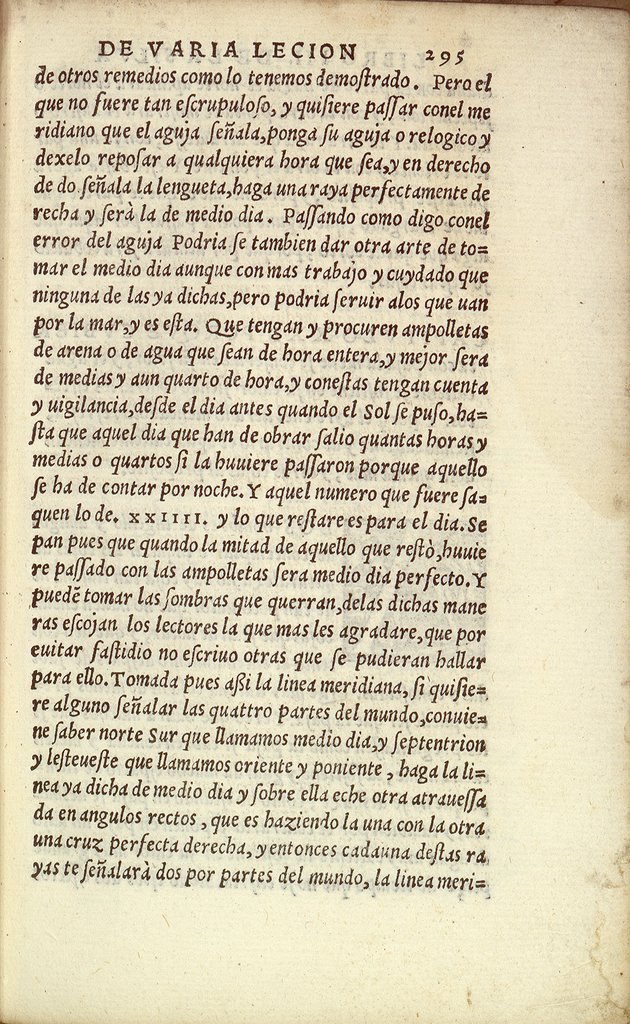 DE VARIA LECION 295
de otros remedios como lo tenemos demoſtrado. Pero el
que no fuere tan eſcrupuloſo, y quiſiere paſſar conel me
ridiano que el aguja ſeñala, ponga ſu aguja o relogico y
dexelo repoſar a qualquiera hora que ſea, y en derecho
de do ſeñala la lengueta, haga una raya perfectamente de
recha y ſerà la de medio dia. Paſſando como digo conel
error del aguja Podria ſe tambien dar otra arte de to=
mar el medio dia aunque con mas trabajo y cuydado que
ninguna de las ya dichas, pero podria ſeruir alos que uan
por la mar, y es eſta. Que tengan y procuren ampolletas
de arena o de agua que ſean de hora entera, y mejor ſera
de medias y aun quarto de hora, y coneſtas tengan cuenta
y uigilancia, deſde el dia antes quando el Sol ſe puſo, ha=
ſta que aquel dia que han de obrar ſalio quantas horas y
medias o quartos ſi la huuiere paſſaron porque aquello
ſe ha de contar por noche. Y aquel numero que fuere ſa=
quen lo de. XXIIII. y lo que reſtare es para el dia. Se
pan pues que quando la mitad de aquello que reſtò, huuie
re paſſado con las ampolletas ſera medio dia perfecto. Y
puedē tomar las ſombras que querran, delas dichas mane
ras eſcojan los lectores la que mas les agradare, que por
euitar faſtidio no eſcriuo otras que ſe pudieran hallar
para ello. Tomada pues aßi la linea meridiana, ſi quiſie=
re alguno ſeñalar las quattro partes del mundo, conuie=
ne ſaber norte Sur que llamamos medio dia, y ſeptentrion
y leſteueſte que llamamos oriente y poniente, haga la li=
nea ya dicha de medio dia y ſobre ella eche otra atraueſſa
da en angulos rectos, que es haziendo la una con la otra
una cruz perfecta derecha, y entonces cada una deſtas ra
yas te ſeñalarà dos por partes del mundo, la linea meri=